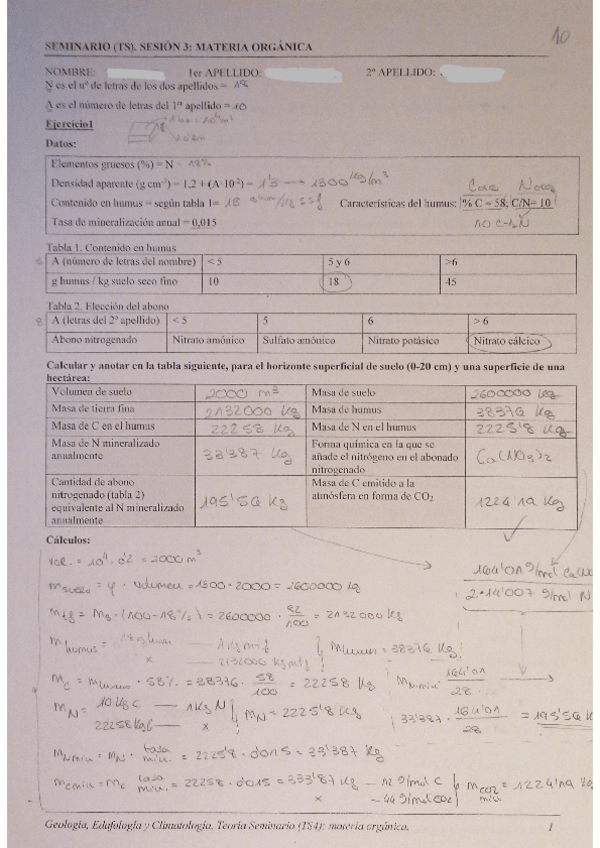 10
SEMINARIO (TS). SESIÓN 3: MATERIA ORGÁNICA
NOMBRE: 1er APELLIDO: 2º APELLIDO:
N es el nº de letras de los dos apellidos = 18
A es el número de letras del 1er apellido = 10
Ejercicio1
Datos:
Elementos gruesos (%) = N = 18%
Densidad aparente (g cm-3) = 1,2 + (A·10-2) = 1'3 — 1300 kg/m3
Contenido en humus = según tabla 1= 18 Características del humus: % C = 58; C/N= 10
Tasa de mineralización anual = 0,015
10 C-1N
Tabla 1. Contenido en humus
A (número de letras del nombre) < 5 5 y 6 >6
g humus / kg suelo seco fino 10 18 45
Tabla 2. Elección del abono
8 A (letras del 2º apellido) < 5 5 6 > 6
Abono nitrogenado Nitrato amónico Sulfato amónico Nitrato potásico Nitrato cálcico
Calcular y anotar en la tabla siguiente, para el horizonte superficial de suelo (0-20 cm) y una superficie de una
hectárea:
Volumen de suelo 2000 m3 Masa de suelo 2600000 kg
Masa de tierra fina 2132000 Kg Masa de humus 38376 Kg
Masa de C en el humus 22258 Kg Masa de N en el humus 2225'8 Kg
Masa de N mineralizado
anualmente 33'387 Kg Forma química en la que se
añade el nitrógeno en el abonado
nitrogenado Ca(NO3)2
Cantidad de abono
nitrogenado (tabla 2)
equivalente al N mineralizado
anualmente 195'56 Kg Masa de C emitido a la
atmósfera en forma de CO2 1224'19 Kg
Cálculos:
Vol. = 10^4 · 0'2 = 2000 m3
164'01 g/mol
2·14'007 g/mol N
m suelo = φ · volumen = 1300 · 2000 = 2600000 kg
· (100-18%) = 2600000 · 82/100 = 2132000 Kg
m humus = 18 g humus — 1 kg
x — 2132000 kg
m humus = 38376 Kg
mC = m humus · 58% = 38376 · 58/100 = 22258 Kg
164'01/28
mN = 10 Kg C — 1 Kg N
22258 Kg C — x
mN = 2225'8 Kg
33'387 · 164'01/28 = 195'56 K
= mN · tasa min. = 2225'8 · 0'015 = 33'387 Kg
= mC tasa min. = 22258 · 0'015 = 333'87 Kg — 12 g/mol C
x — 44 g/mol CO2
mCO2 = 1224'19 Kg
Geología, Edafología y Climatología. Teoría Seminario (TS4): materia orgánica. 1